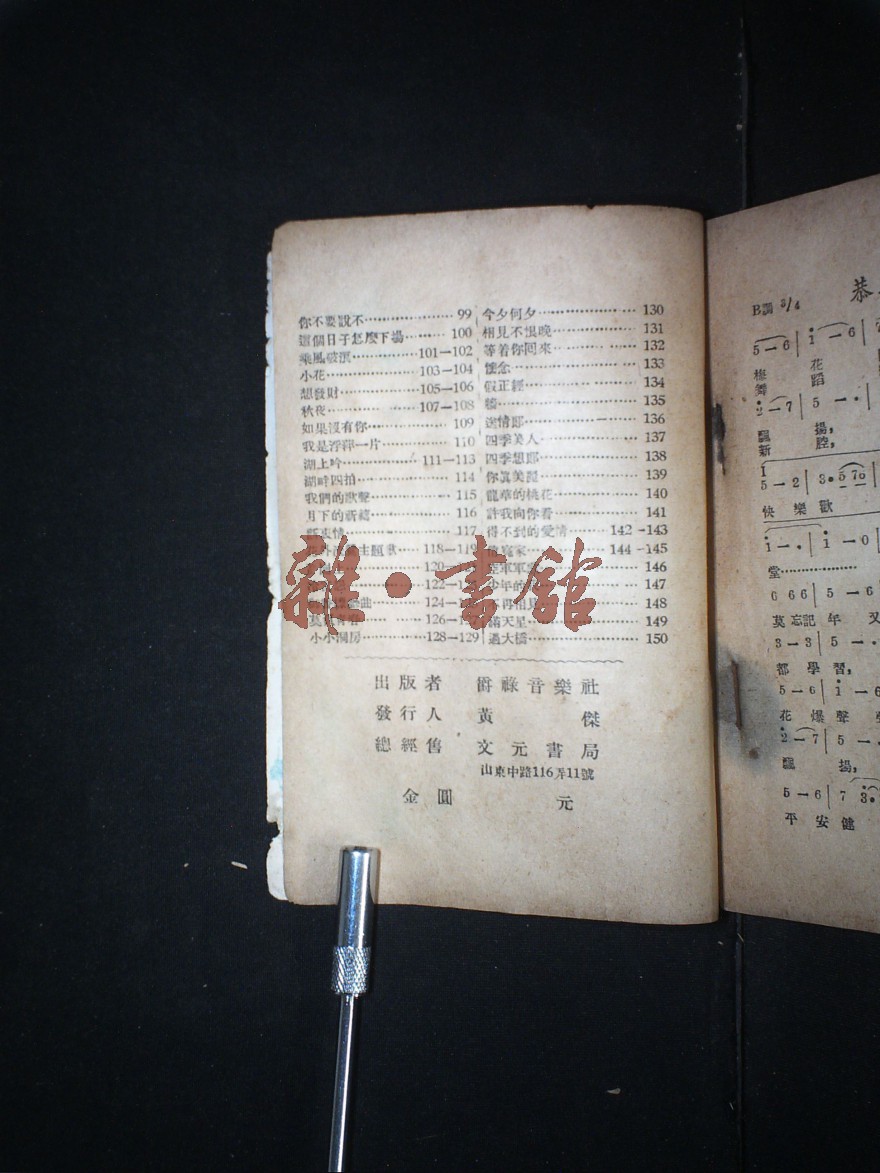 你不要說不 99
這個日子怎麼下場 100
乘風破浪 101—102
小花 103—104
想發財 105—106
秋夜 107—108
如果沒有你 109
我是浮萍一片 110
湖上吟 111—113
湖畔四拍 114
我們的歌聲 115
月下的祈禱 116
117
主題歌 118—119
120
122
曲 124
126
小小洞房 128—129
今夕何夕 130
相見不恨晚 131
等着你回來 132
懷念 133
假正經 134
135
送情郎 136
四季美人 137
四季想郎 138
你真美麗 139
龍華的桃花 140
許我向你看 141
得不到的愛情 142—143
144—145
146
少年的 147
不再相見 148
滿天星 149
過大橋 150
出版者 爵祿音樂社
發行人 黃傑
總經售 文元書局
山東中路116弄11號
金圓 元
雜·書館
恭
B調 3/4
5—6 | i—6 |
花
舞 蹈
2—7 | 5—· |
飄 揚,
新 腔,
1
5—2 | 3·5 76
快樂歌
i—· | i—0
堂
6 66 | 5—6 |
莫忘記 年 又
3—3 | 5—6 |
都學習,
5—6 | i—6
花爆聲
2—7 | 5—·
飄 揚,
5—6 | 7 3·
平安健